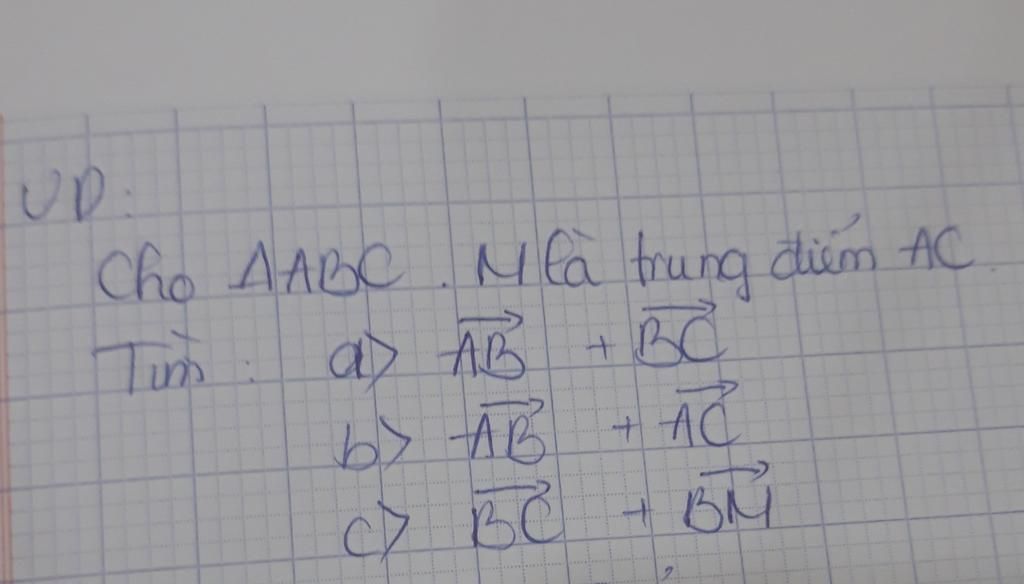 VD:
Cho ΔABC. M là trung điểm AC.
Tìm: a> $\overrightarrow{AB}$ + $\overrightarrow{BC}$
b> $\overrightarrow{AB}$ + $\overrightarrow{AC}$
c> $\overrightarrow{BC}$ + $\overrightarrow{BM}$